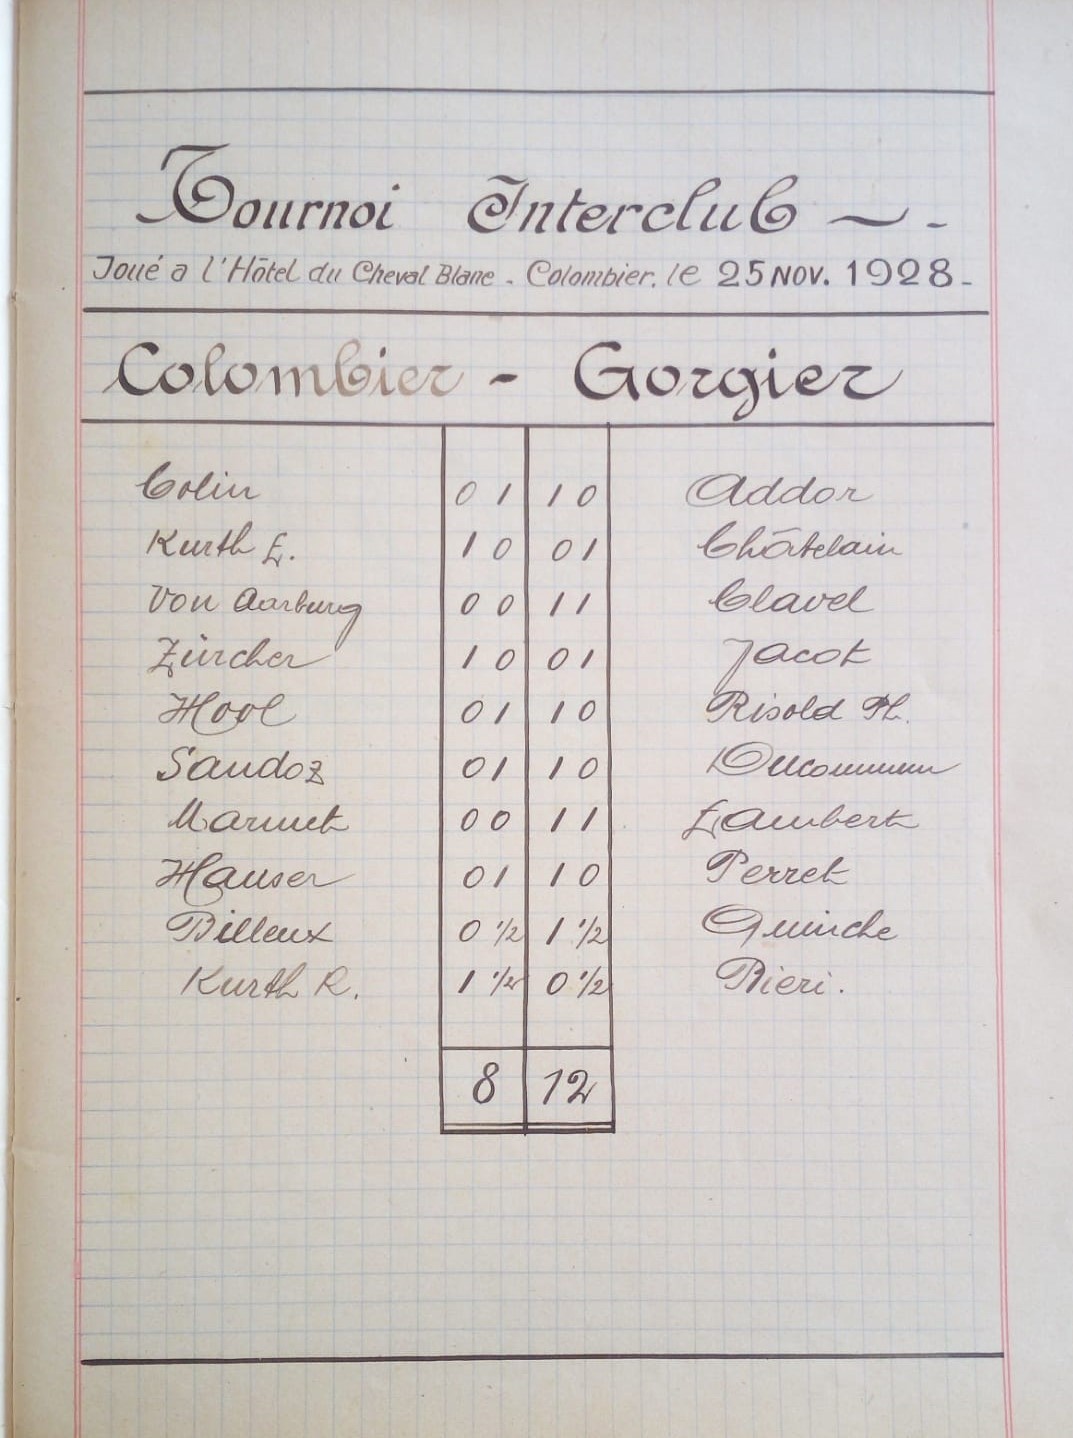 Tournoi Interclub
Joué a l'Hôtel du Cheval Blanc - Colombier. le 25 NOV. 1928.
Colombier - Gorgier
Colin 0 1 1 0 Addor
Kurth E. 1 0 0 1 Châtelain
Von Aarburg 0 0 1 1 Clavel
Zürcher 1 0 0 1 Jacot
Hool 0 1 1 0 Risold Ph.
Sandoz 0 1 1 0 Ducommun
Marmet 0 0 1 1 Lambert
Hauser 0 1 1 0 Perret
Billeux 0 ½ 1 ½ Guinche
Kurth R. 1 ½ 0 ½ Bieri.
8 12